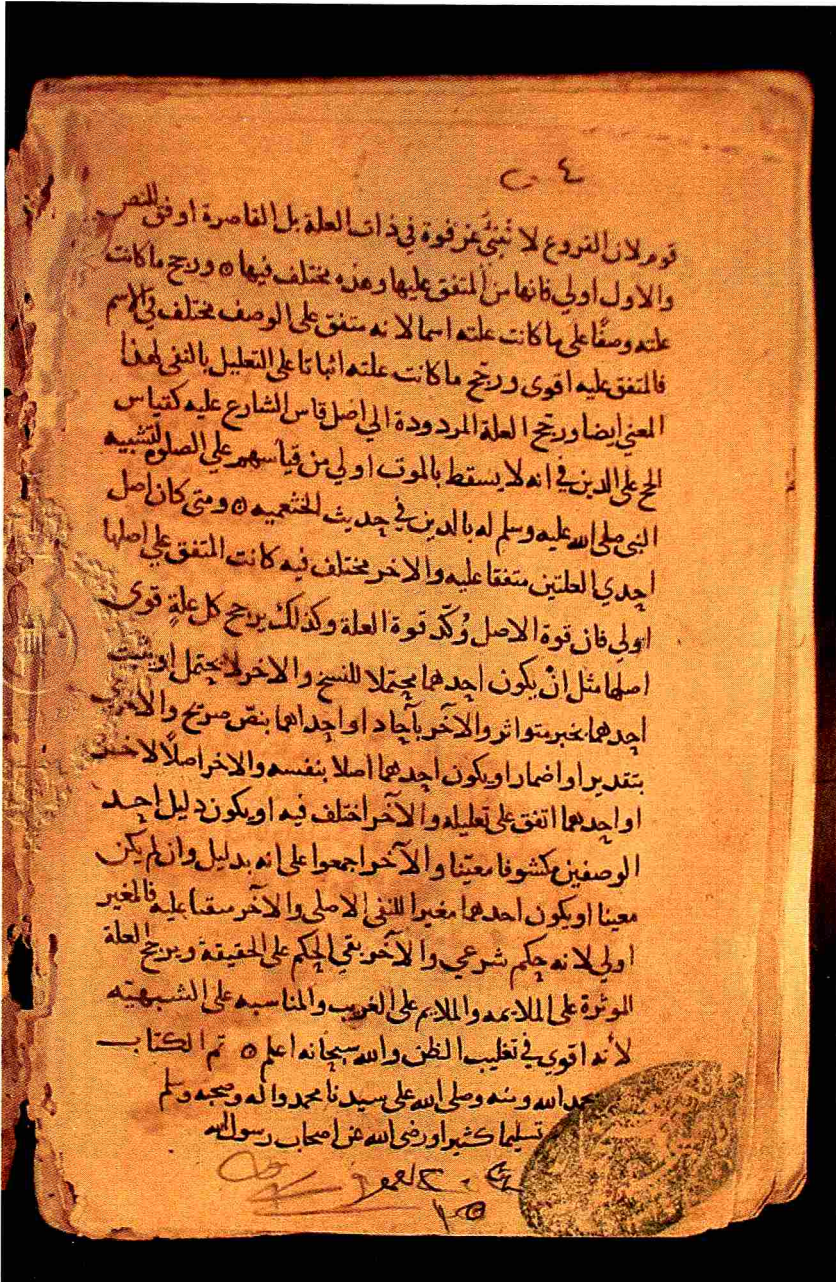 قوم لان الفروع لا تُنبئُ عن قوة في ذات العلة بل القاصرة اوفق للنص
والاول اولي فانها من المتفق عليها وهذه مختلف فيها ٥ ورجح ما كانت
علته وصفًا على ما كانت علته اسما لانه متفق على الوصف مختلف في الاسم
فالمتفق عليه اقوى ورجّح ما كانت علته اثباتا على التعليل بالنفى لهذا
المعني ايضا ورجح العلة المردودة الي اصل قاس الشارع عليه كقياس
الحج على الدين في انه لا يسقط بالموت اولي من قياسهم علي الصلوة لتشبيه
النبى صلى الله عليه وسلم له بالدين في حديث الخثعميه ٥ ومتى كان اصل
احدي العلتين متفقا عليه والاخر مختلف فيه كانت المتفق علي اصلها
اولي فان قوة الاصل تُوكّد قوة العلة وكذلك يرجح كل علةٍ قوى
اصلها مثل انْ يكون احدهما محتملا للنسخ والاخر لا يحتمل او يثبت
احدهما بخبر متواتر والآخر بآحاد او احداهما بنصّ صريح والآخر
بتقدير او اضمار او يكون احدهما اصلا بنفسه والاخر اصلًا لاخر
او احدهما اتفق على تعليله والآخر اختلف فيه او يكون دليل احد
الوصفين مكشوفا معيّنا والآخر اجمعوا على انه بدليل وان لم يكن
معينا او يكون احدهما مغيرا للنفى الاصلى والآخر مبقيا عليه فالمغير
اولي لانه حكم شرعي والآخر بقي الحكم على الحقيقة ويرجح العلة
الموثرة على الملايمه والملايم على الغريب والمناسبه على الشبهيّه
لأنه اقوي في تغليب الظن والله سبحانه اعلم ٥ تم الكتاب
بحمد الله ومنه وصلى الله على سيدنا محمد واله وصحبه وسلم
تسليما كثيرا ورضى الله عن اصحاب رسول الله